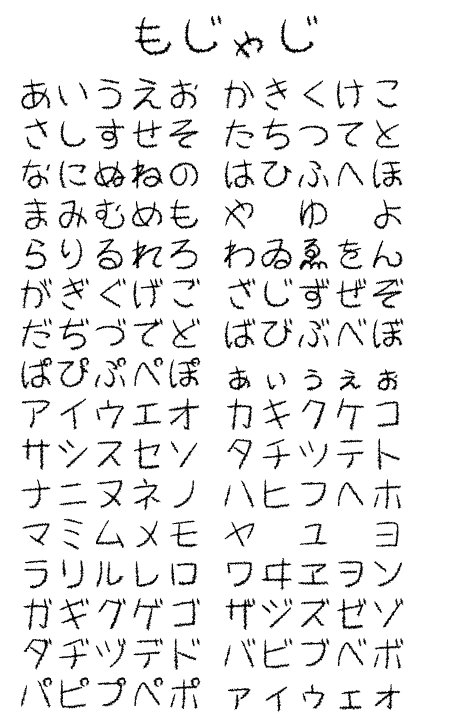 もじゃじ
あいうえお かきくけこ
さしすせそ たちつてと
なにぬねの はひふへほ
まみむめも や ゆ よ
らりるれろ わゐゑをん
がぎぐげご ざじずぜぞ
だぢづでど ばびぶべぼ
ぱぴぷぺぽ ぁぃぅぇぉ
アイウエオ カキクケコ
サシスセソ タチツテト
ナニヌネノ ハヒフヘホ
マミムメモ ヤ ユ ヨ
ラリルレロ ワヰヱヲン
ガギグゲゴ ザジズゼゾ
ダヂヅデド バビブベボ
パピプペポ ァィゥェォ